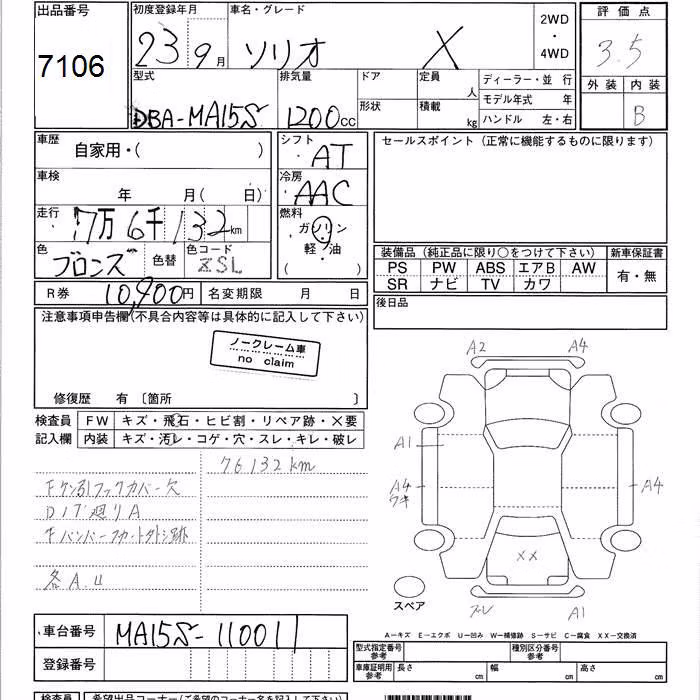 出品番号
7106
初度登録年月
23年9月
車名・グレード
ソリオ X
2WD
・
4WD
評価点
3.5
外装 内装
B
型式
DBA-MA15S
排気量
1200cc
ドア
形状
定員 人
積載 kg
ディーラー・並 行
モデル年式 年
ハンドル 左・右
車歴
自家用・( )
シフト
AT
セールスポイント(正常に機能するものに限ります)
車検
年 月( 日)
冷房
AAC
走行
7万6千132km
燃料
ガソリン
軽・油
( )
色
ブロンズ
色替
色コード
ZSL
装備品(純正品に限り○をつけて下さい)
新車保証書
PS PW ABS エアB AW
SR ナビ TV カワ
有・無
R券
10,900円
名変期限 月 日
後日品
注意事項申告欄(不具合内容等は具体的に記入して下さい)
ノークレーム車
no claim
修復歴 有 〔箇所 〕
検査員
記入欄
FW キズ・飛石・ヒビ割・リペア跡・×要
内装 キズ・汚レ・コゲ・穴・スレ・キレ・破レ
76132km
Fケン引フックカバー欠
Dノブ廻りA
各A.U
A2 A4
A1
A4
A4
××
A1
スペア
A−キズ E−エクボ U−凹み W−補修跡 S−サビ C−腐食 XX−交換済
車台番号
MA15S-110011
登録番号
型式指定番号
参考
種別区分番号
参考
車庫証明用
参考
長さ cm 幅 cm 高さ cm
検査員
希望出品コーナー(ご希望のコーナー名を記入下さい)